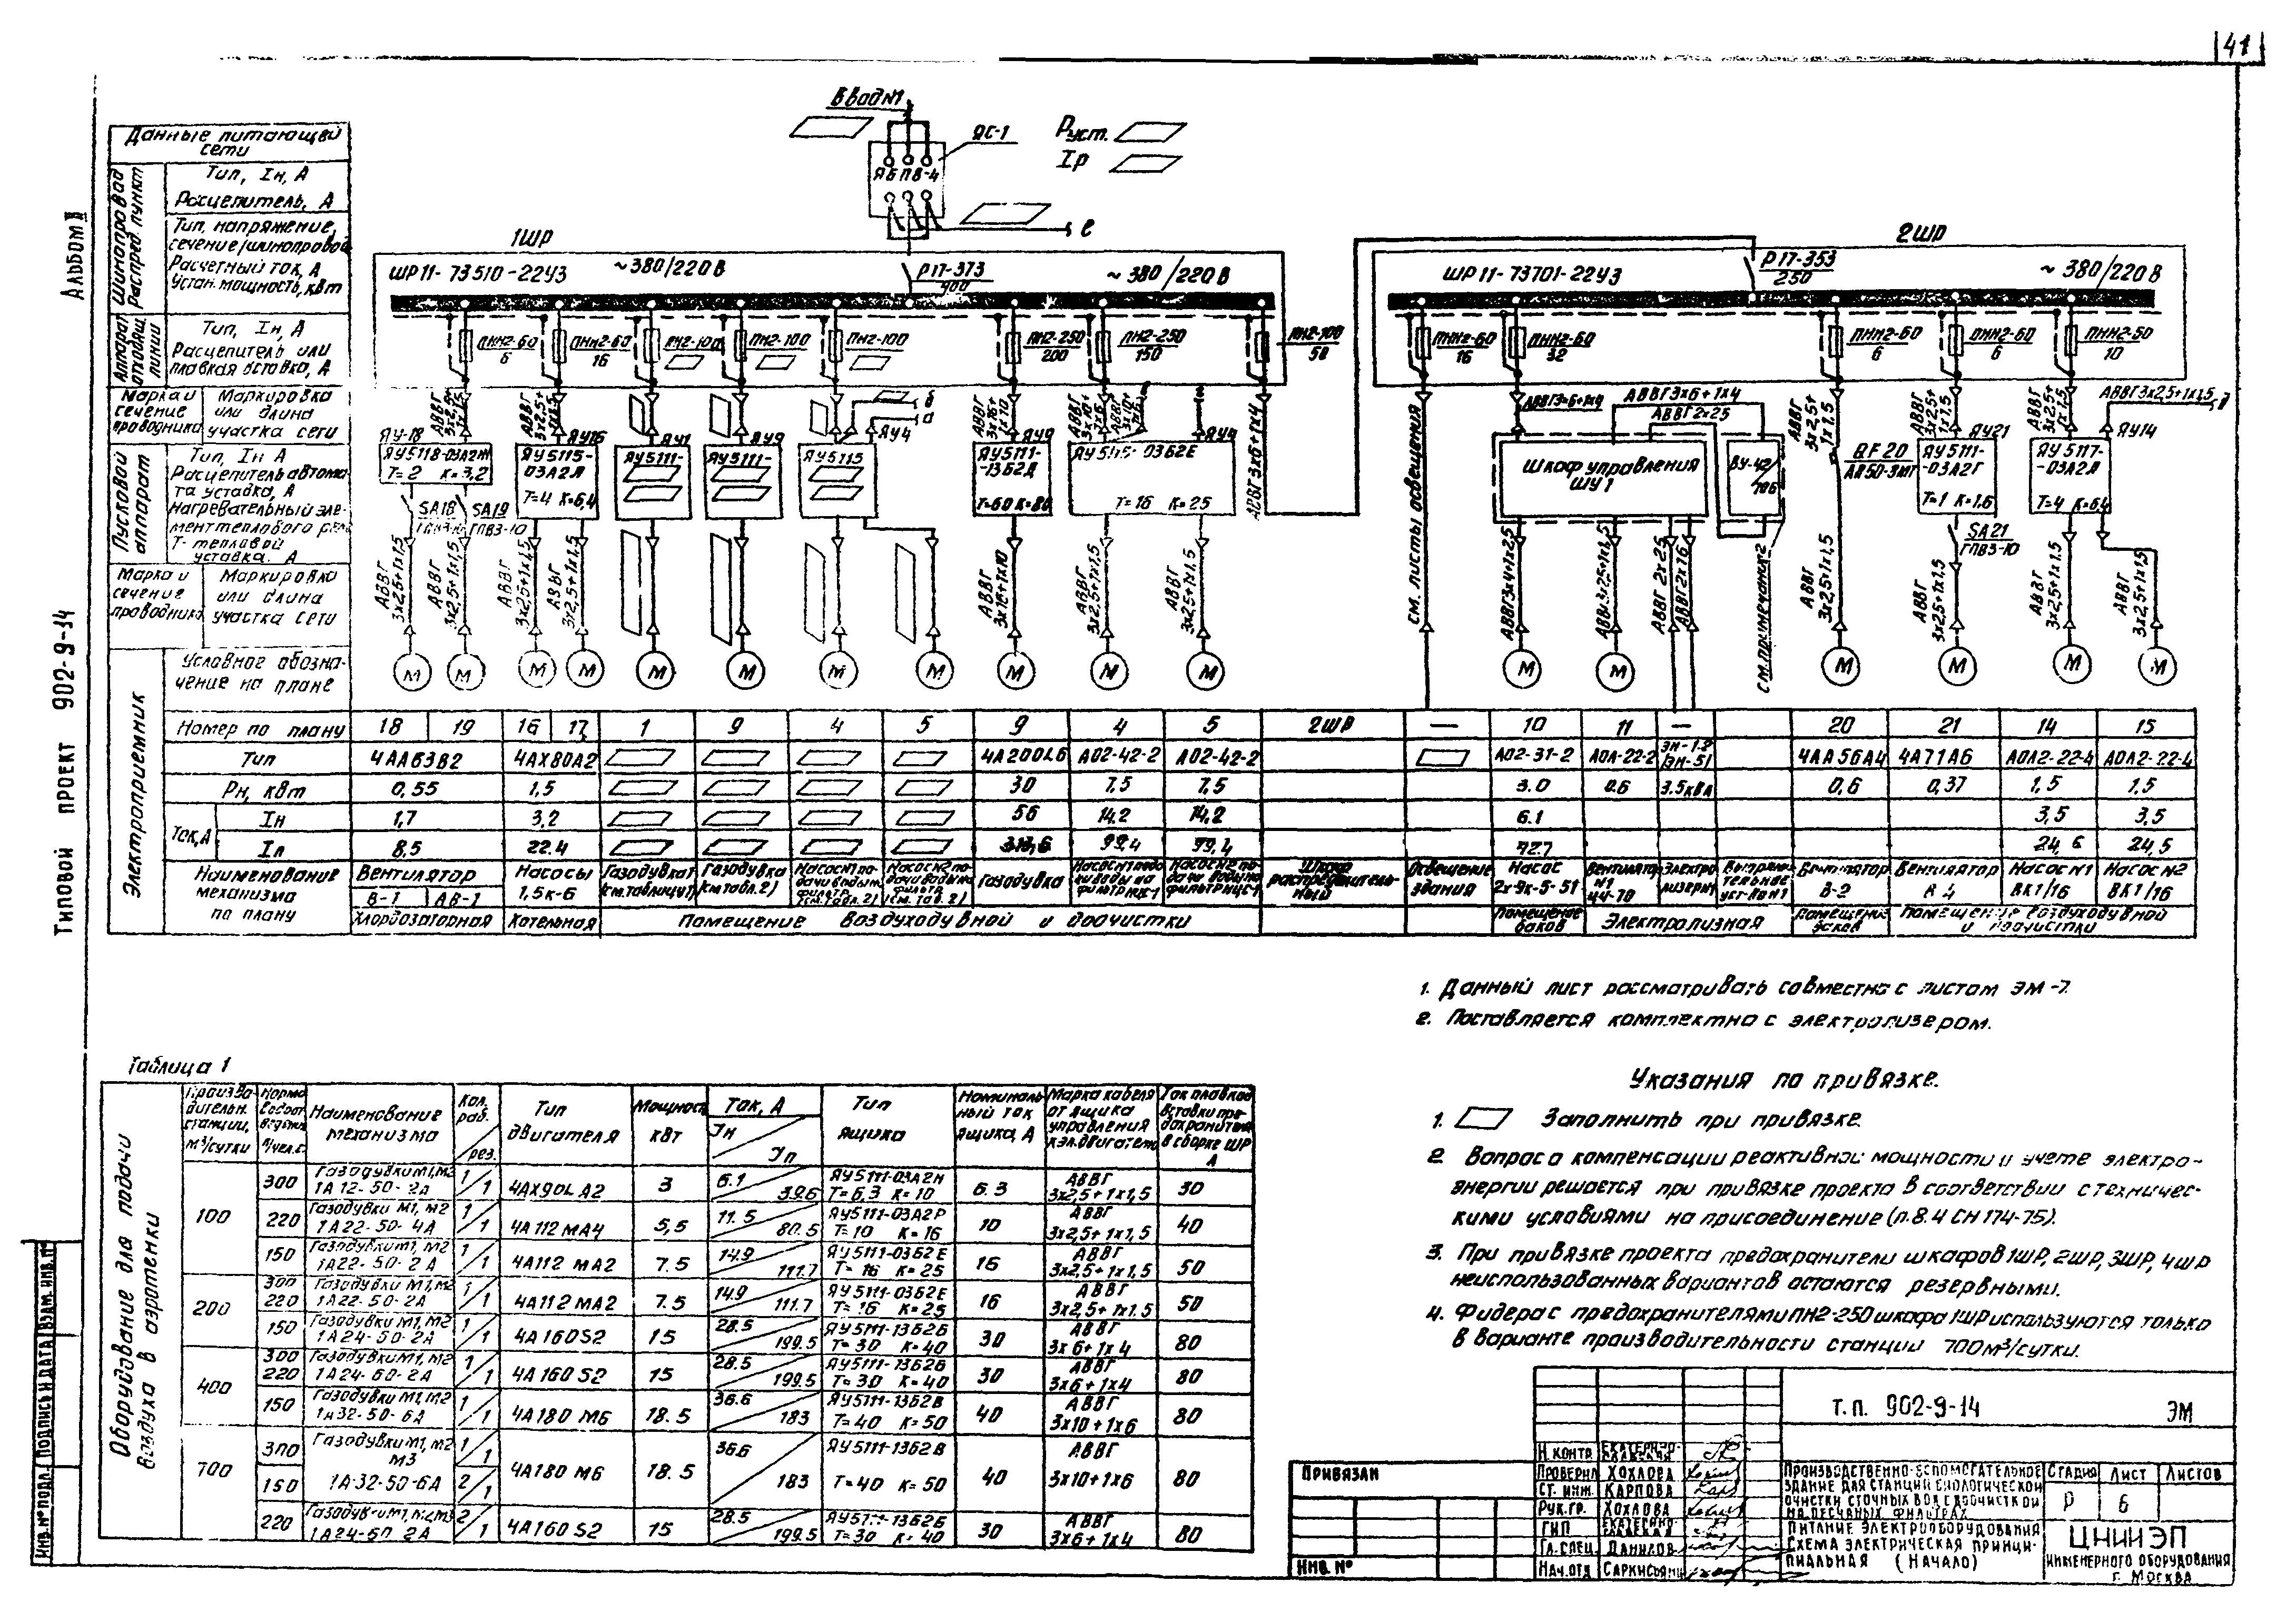 41
Альбом II
Типовой проект 902-9-14
Ввод №1
ЯС-1
ЯБПВ-4
Руст.
Iр
е
Данные питающей сети
Шинопровод Распред. пункт
Тип, Iн, А
Расцепитель, А
Тип, напряжение,
сечение/шинопровод
Расчетный ток, А
Устан. мощность, кВт
Аппарат отходящ. линии
Тип, Iн, А
Расцепитель или
плавкая вставка, А
Марка и сечение проводника
Маркировка или длина участка сети
Пусковой аппарат
Тип, Iн А
Расцепитель автомата уставка, А
Нагревательный элемент теплового реле
Т-тепловой уставка. А
Марка и сечение проводника
Маркировка или длина участка сети
1ШР
ШР11-73510-22У3
~380/220В
Р17-373
400
~380/220В
ПНН2-60
6
ПНН2-60
16
ПН2-100
ПН2-100
ПН2-100
ПН2-250
200
ПН2-250
150
ПН2-100
50
2ШР
ШР11-73701-22У3
Р17-353
250
~380/220В
ПНН2-60
16
ПНН2-60
32
ПНН2-60
6
ПНН2-60
6
ПНН2-50
10
ЯУ-18
ЯУ5118-03А2М
Т=2 К=3,2
SA18 SA19
ГПВ3-10
ЯУ16
ЯУ5115-03А2Л
Т=4 К=6,4
ЯУ1
ЯУ5111-
ЯУ9
ЯУ5111-
б
а
ЯУ4
ЯУ5115
ЯУ9
ЯУ5111-13Б2Д
Т=60 К=80
ЯУ4
ЯУ5115-03Б2Е
Т=16 К=25
АВВГ3х6+1х4
см. листы освещения
АВВГ3х6+1х4
АВВГ3х6+1х4
АВВГ2х25
Шкаф управления
ШУ1
ВУ-42/70Б
см. примечание 2
АВВГ3х4+1х2,5
АВВГ 2х25
АВВГ 2х16
QF20
АП50-3МТ
ЯУ21
ЯУ5111-03А2Г
Т=1 К=1,6
SA21
ГПВ3-10
АВВГ3х2,5+1х1,5
ЯУ14
ЯУ5117-03А2Л
Т=4 К=6,4
АВВГ 3х2,5+1х1,5
М М М М М М М М М М М М М М М М М
Электроприемник
Условное обозначение на плане
Номер по плану 18 19 16 17 1 9 4 5 9 4 5 2ШР — 10 11 — 20 21 14 15
Тип 4АА63В2 4АХ80А2 4А200L6 А02-42-2 А02-42-2 А02-31-2 АОЛ-22-2 ЭН-1.2 ЭН-51 4АА56А4 4А71А6 АОЛ2-22-4 АОЛ2-22-4
Рн, кВт 0,55 1,5 30 7,5 7,5 3.0 0.6 3.5кВА 0,6 0,37 1,5 1,5
Ток, А
Iн 1,7 3,2 56 14.2 14.2 6.1 3,5 3,5
Iп 8.5 22.4 99.4 99.4 24,5
Наименование механизма по плану
Вентилятор В-1 АВ-1
Насосы 1,5К-6
Газодувка 1 (см. таблицу 1)
Газодувка (см. табл. 2)
Насос №1 подачи воды на фильтр (см. табл. 2)
Насос №2 подачи воды на фильтр (см. табл. 2)
Газодувка
Шкаф распределительный
Освещение здания
Насос 2х-9к-5-51
Вентилятор №1 Ц4-70
Электролизер №1
Выпрямительное уст-во №1
Вентилятор В-2
Вентилятор В-4
Насос №1 ВК1/16
Насос №2 ВК1/16
Хлордозаторная Котельная Помещение воздуходувной и доочистки Помещение баков Электролизная Помещение воздуходувной и доочистки
1. Данный лист рассматривать совместно с листом ЭМ-7.
2. Поставляется комплектно с электролизером.
Указания по привязке.
1. Заполнить при привязке.
2. Вопрос о компенсации реактивной мощности и учете электро-
энергии решается при привязке проекта в соответствии с техничес-
кими условиями на присоединение (п.8.4 СН 174-75).
3. При привязке проекта предохранители шкафов 1ШР, 2ШР, 3ШР, 4ШР
неиспользованных вариантов остаются резервными.
4. Фидера с предохранителями ПН2-250 шкафа 1ШР используются только
в варианте производительности станции 700м³/сутки.
Таблица 1
Оборудование для подачи воздуха в аэротенки
Производительн. станции, м³/сутки
Норма водоотведения л/чел.с.
Наименование механизма
Кол. раб. / рез.
Тип двигателя
Мощность кВт
Ток, А Iн / Iп
Тип ящика
Номинальный ток ящика, А
Марка кабеля от ящика управления к эл. двигателю
Ток плавкой вставки предохранителя в сборке ШР А
100 300 Газодувки М1, М2 1А12-50-2А 1/1 4АХ90L А2 3 6.1 39.6 ЯУ5111-03А2Н Т=6.3 К=10 6.3 АВВГ 3х2,5+1х1,5 30
220 Газодувки М1, М2 1А22-50-4А 1/1 4А112МА4 5,5 11.5 80.5 ЯУ5111-03А2Р Т=10 К=16 10 АВВГ 3х2,5+1х1,5 40
150 Газодувки М1, М2 1А22-50-2А 1/1 4А112 МА2 7.5 14.9 111.7 ЯУ5111-03Б2Е Т=16 К=25 16 АВВГ 3х2,5+1х1,5 50
200 300 220 Газодувки М1, М2 1А22-50-2А 1/1 4А112 МА2 7.5 14.9 111.7 ЯУ5111-03Б2Е Т=16 К=25 16 АВВГ 3х2,5+1х1.5 50
150 Газодувки М1, М2 1А24-50-2А 1/1 4А160S2 15 28.5 199.5 ЯУ5111-13Б2Б Т=30 К=40 30 АВВГ 3х6+1х4 80
400 300 220 Газодувки М1, М2 1А24-60-2А 1/1 4А160 S2 15 28.5 199.5 ЯУ5111-13Б2Б Т=30 К=40 30 АВВГ 3х6+1х4 80
150 Газодувки М1, М2 1А32-50-6А 1/1 4А180 М6 18.5 36.6 183 ЯУ5111-13Б2В Т=40 К=50 40 АВВГ 3х10+1х6 80
700 300 150 Газодувки М1, М2 М3 1А-32-50-6А 1/1 2/1 4А180 М6 18.5 36.6 183 ЯУ5111-13Б2В Т=40 К=50 40 АВВГ 3х10+1х6 80
220 Газодувки М1, М2, М3 1А24-60 2А 2/1 4А160 S2 15 28.5 199.5 ЯУ5111-13Б2Б Т=30 К=40 30 АВВГ 3х6+1х4 80
Инв. № подл. Подпись и дата Взам. инв. №
Привязан
Инв. №
Т.П. 902-9-14 ЭМ
Н.контр. Екатерино-
Проверил Хохлова
Ст. инж. Карпова
Рук.гр. Хохлова
ГИП Екатерино-
Гл.спец. Данилов
Нач.отд Саркисьянц
Производственно-вспомогательное
здание для станций биологической
очистки сточных вод с доочисткой
на песчаных фильтрах
Питание электрооборудования
Схема электрическая принци-
пиальная (Начало)
Стадия Лист Листов
Р 6
ЦНИИЭП
инженерного оборудования
г. Москва